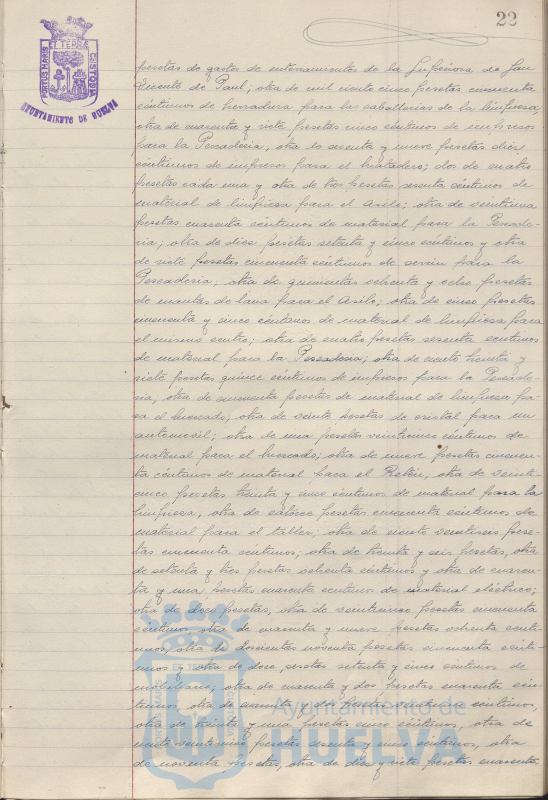 22
PORTUS MARIS ET TERRÆ CUSTODIA
AYUNTAMIENTO DE HUELVA
pesetas de gastos de enterramientos de la Superiora de San
Vicente de Paul, otra de mil ciento cinco pesetas cincuenta
céntimos de herradura para las caballerías de la limpieza,
otra de cuarenta y siete pesetas cinco céntimos de impresos
para la Pescadería, otra de sesenta y nueve pesetas diez
céntimos de impresos para el Matadero; dos de cuatro
pesetas cada una y otra de tres pesetas sesenta céntimos de
material de limpieza para el Asilo; otra de veintiuna
pesetas cuarenta céntimos de material para la Pescade-
ría; otra de diez pesetas setenta y cinco céntimos y otra
de siete pesetas cincuenta céntimos de serrín para la
Pescadería; otra de quinientas ochenta y ocho pesetas
de mantas de lana para el Asilo; otra de cinco pesetas
cincuenta y cinco céntimos de material de limpieza para
el mismo centro; otra de cuatro pesetas sesenta céntimos
de material para la Pescadería; otra de ciento treinta y
siete pesetas quince céntimos de impresos para la Pescade-
ría, otra de cincuenta pesetas de material de limpieza pa-
ra el Mercado, otra de veinte pesetas de cristal para un
automovil; otra de una pesetas veinticinco céntimos de
material para el Mercado; otra de nueve pesetas cincuen-
ta céntimos de material para el Reten, otra de veinti-
cinco pesetas treinta y cinco céntimos de material para la
limpieza, otra de catorce pesetas cincuenta céntimos de
material para el taller; otra de ciento veintiseis pese-
tas cincuenta céntimos; otra de treinta y seis pesetas, otra
de setenta y tres pesetas ochenta céntimos y otra de cuaren-
ta y una pesetas cuarenta céntimos de material eléctrico;
otra de doce pesetas, otra de veinticinco pesetas cincuenta
céntimos, otra de cuarenta y nueve pesetas ochenta cénti-
mos, otra de doscientas noventa pesetas cincuenta cénti-
mos y otra de doce pesetas setenta y cinco céntimos de
mobiliario; otra de cuarenta y dos pesetas cuarenta cén-
timos, otra de cuarenta y dos pesetas céntimos,
otra de treinta y una pesetas cinco céntimos, otra de
ciento veinticinco pesetas sesenta y cinco céntimos, otra
de noventa pesetas, otra de diez y siete pesetas cuarenta
Ayuntamiento de
HUELVA